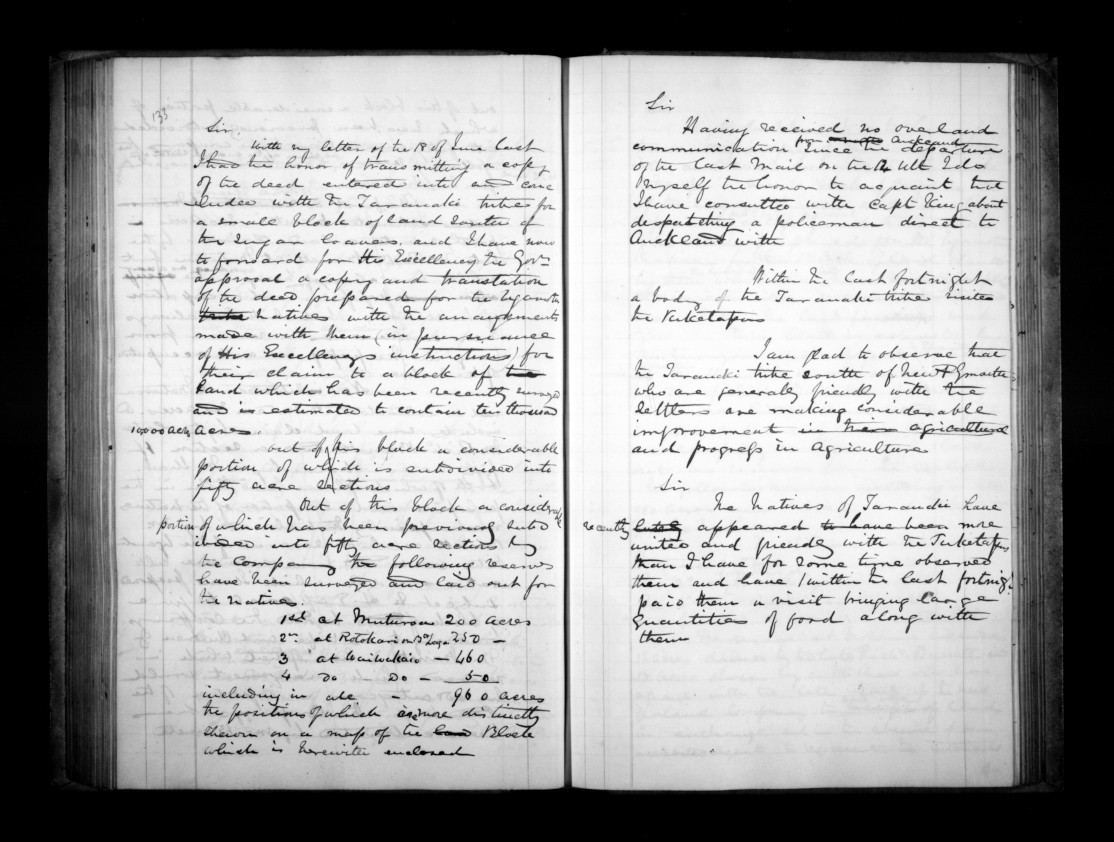 133
Sir
With my letter of the 18 of June last
I had the honor of transmitting a copy
of the deed entered into and conc
luded with the Taranaki tribes for
a small block of land South of
the Sugar loaves. and I have now
to forward for His Excellency the Govrs
approval a copy and translation
of the deed prepared for the
tribe Natives with the arrangements
made with them (in pursuance
of His Excellencys instructions) for
their claim to a block of the
land which has been recently surveyed
and is estimated to contain ten thousand
10,000 acres acres.
out of this block a considerable
portion of which is subdivided into
fifty acre sections
Out of this block a considerable
portion of which has been previously subd
ivided into fifty acre sections by
the Company the following reserves
have been surveyed and laid out for
the natives.
1st at 200 acres
2nd at 250 —
3 at Waiwakaio — 460
4 Do - Do — 50
including in all - 960 acres
the positions of which are more distinctly
shewn on a map of the land Block
which is herewith enclosed
Sir
Having received no overland
communication from Auckland since the departure
of the last Mail on the Ult I do
myself the honor to acquaint that
I have consulted with Capt King about
despatching a policeman direct to
Auckland with
Within the last fortnight
a body of the Taranaki tribe visited
the Puketapus
I am glad to observe that
the Taranaki tribe south of New Plymouth
who are generally friendly with the
settlers are making considerable
improvement in their agricultural
and progress in agriculture
Sir
The Natives of Taranaki have
recently lately appeared to have been more
united and friendly with the Puketapus
than I have for some time observed
them and have within the last fortnight
paid them a visit bringing large
quantities of food along with
them